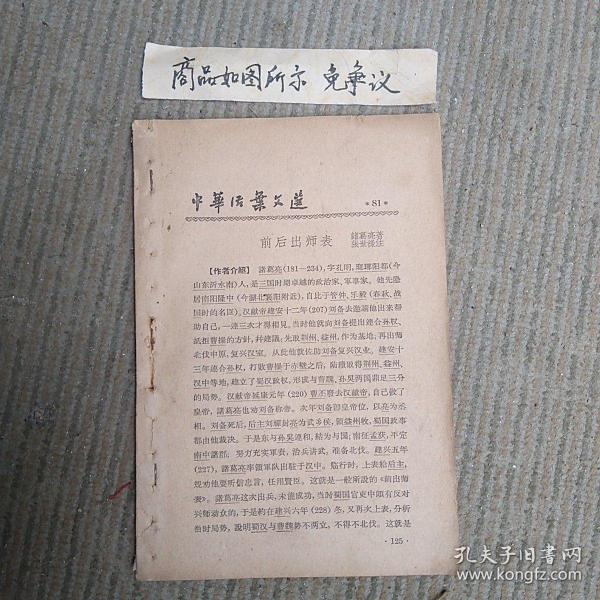 商品如图所示 免争议
中華活葉文选
*81*
前后出师表
諸葛亮著
张世祿注
【作者介紹】 諸葛亮(181—234),字孔明,琅琊阳都(今
山东沂水南)人,是三国时期卓越的政治家、軍事家。他先隐
居南阳隆中(今湖北襄阳附近),自比于管仲、乐毅(春秋、战
国时的名臣)。汉献帝建安十二年(207)刘备去邀請他出来帮
助自己,一連三次才得相見。当时他就向刘备提出連合孙权、
抵拒曹操的方針,幷建議:先取荆州、益州,作为基地;再出师
北伐中原,复兴汉室。从此他就佐助刘备复兴汉业。建安十
三年連合孙权,打敗曹操于赤壁之后,陆續取得荆州、益州、
汉中等地,建立了蜀汉政权,形成与曹魏、孙吴两国鼎足三分
的局势。汉献帝延康元年(220)曹丕廢去汉献帝,自己做了
皇帝,諸葛亮也劝刘备称帝。次年刘备即皇帝位,以亮为丞
相。刘备死后,后主刘禪封亮为武乡侯,領益州牧,蜀国政事
都由他裁决。于是东与孙吴連和,結为与国;南征孟获,平定
南中諸郡;努力充实軍資,治兵讲武,准备北伐。建兴五年
(227),諸葛亮率領軍队出駐于汉中。临行时,上表給后主,
規劝他要听信忠言,任用賢臣。这就是一般所說的《前出师
表》。諸葛亮这次出兵,未能成功,当时蜀国官吏中頗有反对
兴师动众的,于是約在建兴六年(228)冬,又再次上表,分析
当时局势,說明蜀汉与曹魏势不两立,不得不北伐。这就是
·125·
孔夫子旧书网
www.kongfz.com